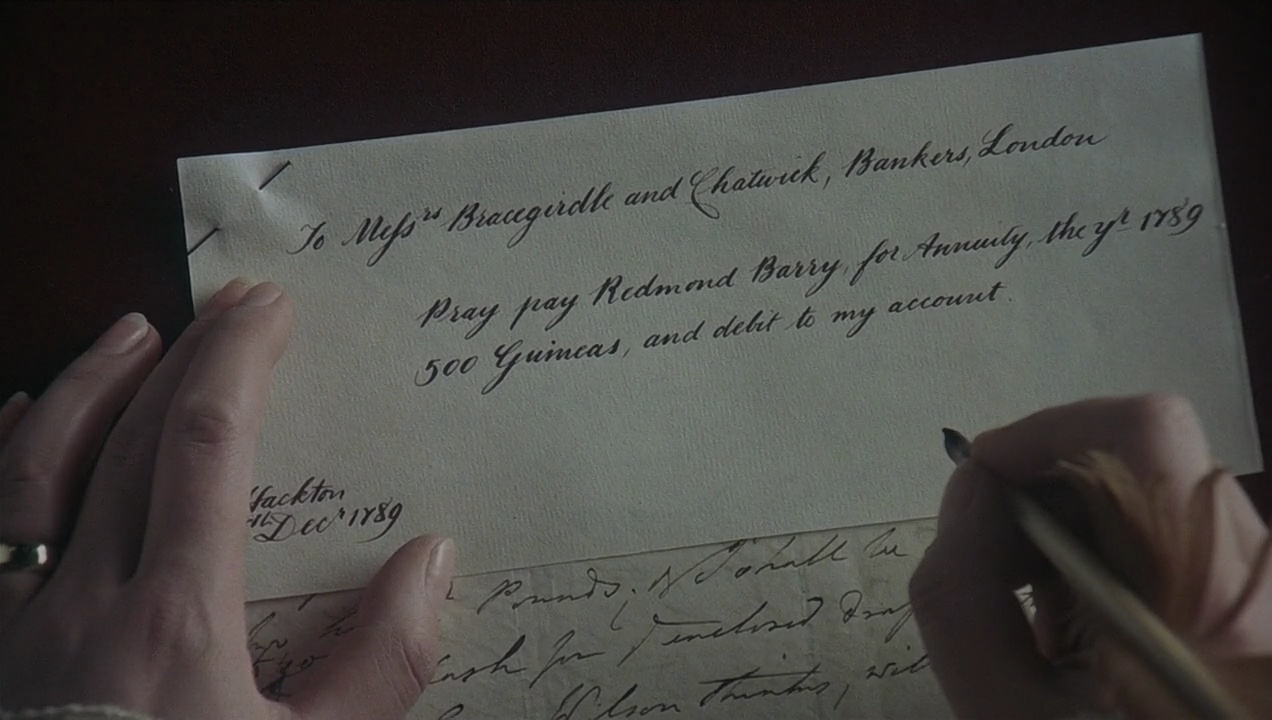 To Messrs Bracegirdle and Chatwick, Bankers, London
Pray pay Redmond Barry, for Annuity, the yr 1789
500 Guineas, and debit to my account.
Hackton
Decr 1789
Pounds, & I shall be
cash for enclosed
Wilson thinks, will